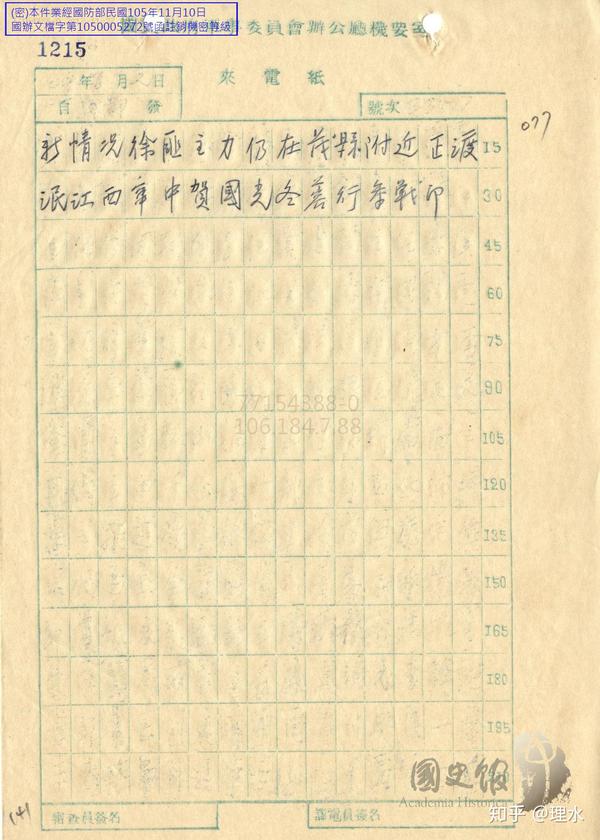 (密)本件業經國防部民國105年11月10日
國辦文檔字第1050005272號函註銷機密等級
委員會辦公廳機要室
1215
來電紙
年 月 日
自 發
號次
077
新情况徐匪主力仍在茂縣附近正渡 15
泯江西窜中賀國光冬善行参戰印 30
45
60
75
90
77154388-0
106.184.7.88
105
120
135
150
165
180
195
國史館
Academia Historica
(4)
審查員簽名
譯電員簽名
知乎 @理水